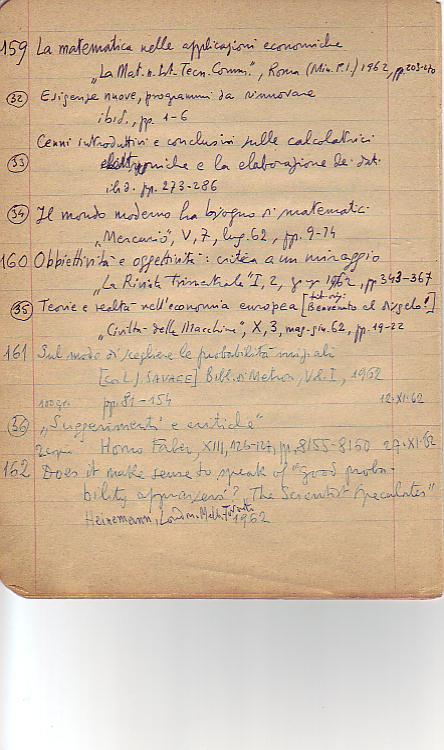 159 La matematica nelle applicazioni economiche
"La Mat. n. Ist. Tecn. Comm.", Roma (Min. P.I.) 1962, pp. 203-270
32 Esigenze nuove, programmi da rinnovare
ibid., pp. 1-6
Cenni introduttivi e conclusivi sulle calcolatrici
33 elettroniche e la elaborazione dei dati
ibid. pp. 273-286
34 Il mondo moderno ha bisogno di matematici
"Mercurio", V, 7, lug. 62, pp. 9-14
160 Obbiettività e oggettività: critica a un miraggio
"La Rivista Trimestrale" I, 2, 1962, pp 343-367
35 Teorie e realtà nell'economia europea [tit. orig. Benvenuto al disgelo!]
"Civiltà delle Macchine", X, 3, mag-giu. 62, pp. 19-22
161 Sul modo di scegliere le probabilità iniziali
[col L.J. SAVAGE] Bibl. di Metron, I, 1962
pp. 81-154 12.XI.62
36 "Suggerimenti e critiche"
Homo Faber, XIII, 126-127, pp. 8155-8160 27.XI.62
162 Does it make sense to speak of "good proba-
bility appraisers"? "The Scientist Speculates"
Heinemann, London-Melb.-Toronto
1962